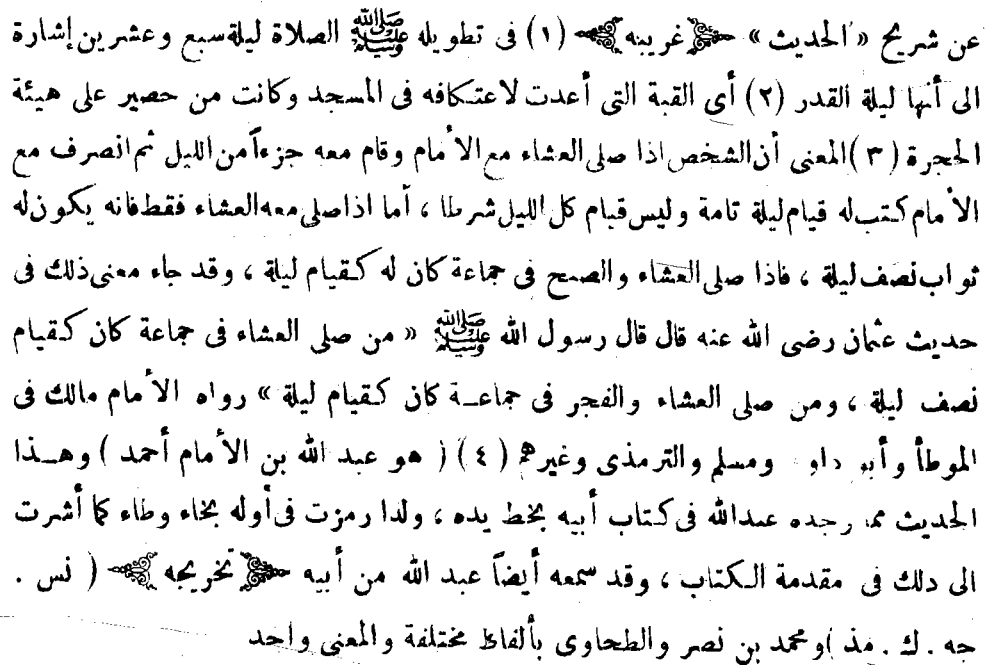 عن شريح « الحديث » غريبه (١) فى تطويله ﷺ الصلاة ليلة سبع وعشرين إشارة
الى أنها ليلة القدر (٢) أى القبة التى أعدت لاعتكافه فى المسجد وكانت من حصير على هيئة
الحجرة (٣) المعنى أن الشخص اذا صلى العشاء مع الأمام وقام معه جزءاً من الليل ثم انصرف مع
الأمام كتب له قيام ليلة تامة وليس قيام كل الليل شرطا ، أما اذا صلى معه العشاء فقط فانه يكون له
ثواب نصف ليلة ، فاذا صلى العشاء والصبح فى جماعة كان له كقيام ليلة ، وقد جاء معنى ذلك فى
حديث عثمان رضى الله عنه قال قال رسول الله ﷺ « من صلى العشاء فى جماعة كان كقيام
نصف ليلة ، ومن صلى العشاء والفجر فى جماعة كان كقيام ليلة » رواه الأمام مالك فى
الموطأ وأبو داود ومسلم والترمذى وغيرهم (٤) ( هو عبد الله بن الأمام أحمد ) وهذا
الحديث مما وجده عبد الله فى كتاب أبيه بخط يده ، ولذا رمزت فى أوله بخاء وطاء كما أشرت
الى ذلك فى مقدمة الكتاب ، وقد سمعه أيضاً عبد الله من أبيه تخريجه ( نس .
جه . ك . مذ ) ومحمد بن نصر والطحاوى بألفاظ مختلفة والمعنى واحد